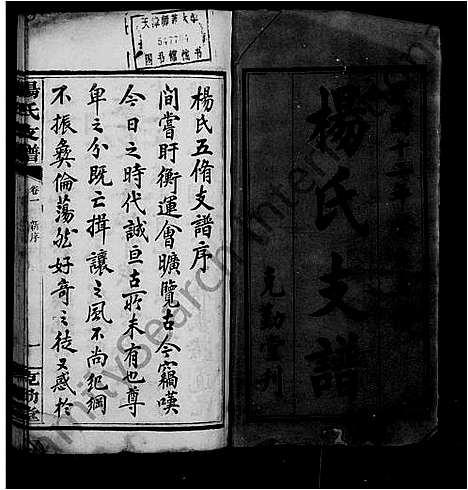 楊氏支譜
克勤堂刊
楊氏五脩支譜序
間嘗盱衡運會曠覽古今竊嘆
今日之時代誠亘古所未有也尊
卑之分既亡揖讓之風不尚紀綱
不振彝倫蕩然好奇之徒又惑於
楊氏支譜
卷一
新序
一
克勤堂
天津師範大學
547704
图书馆馆书